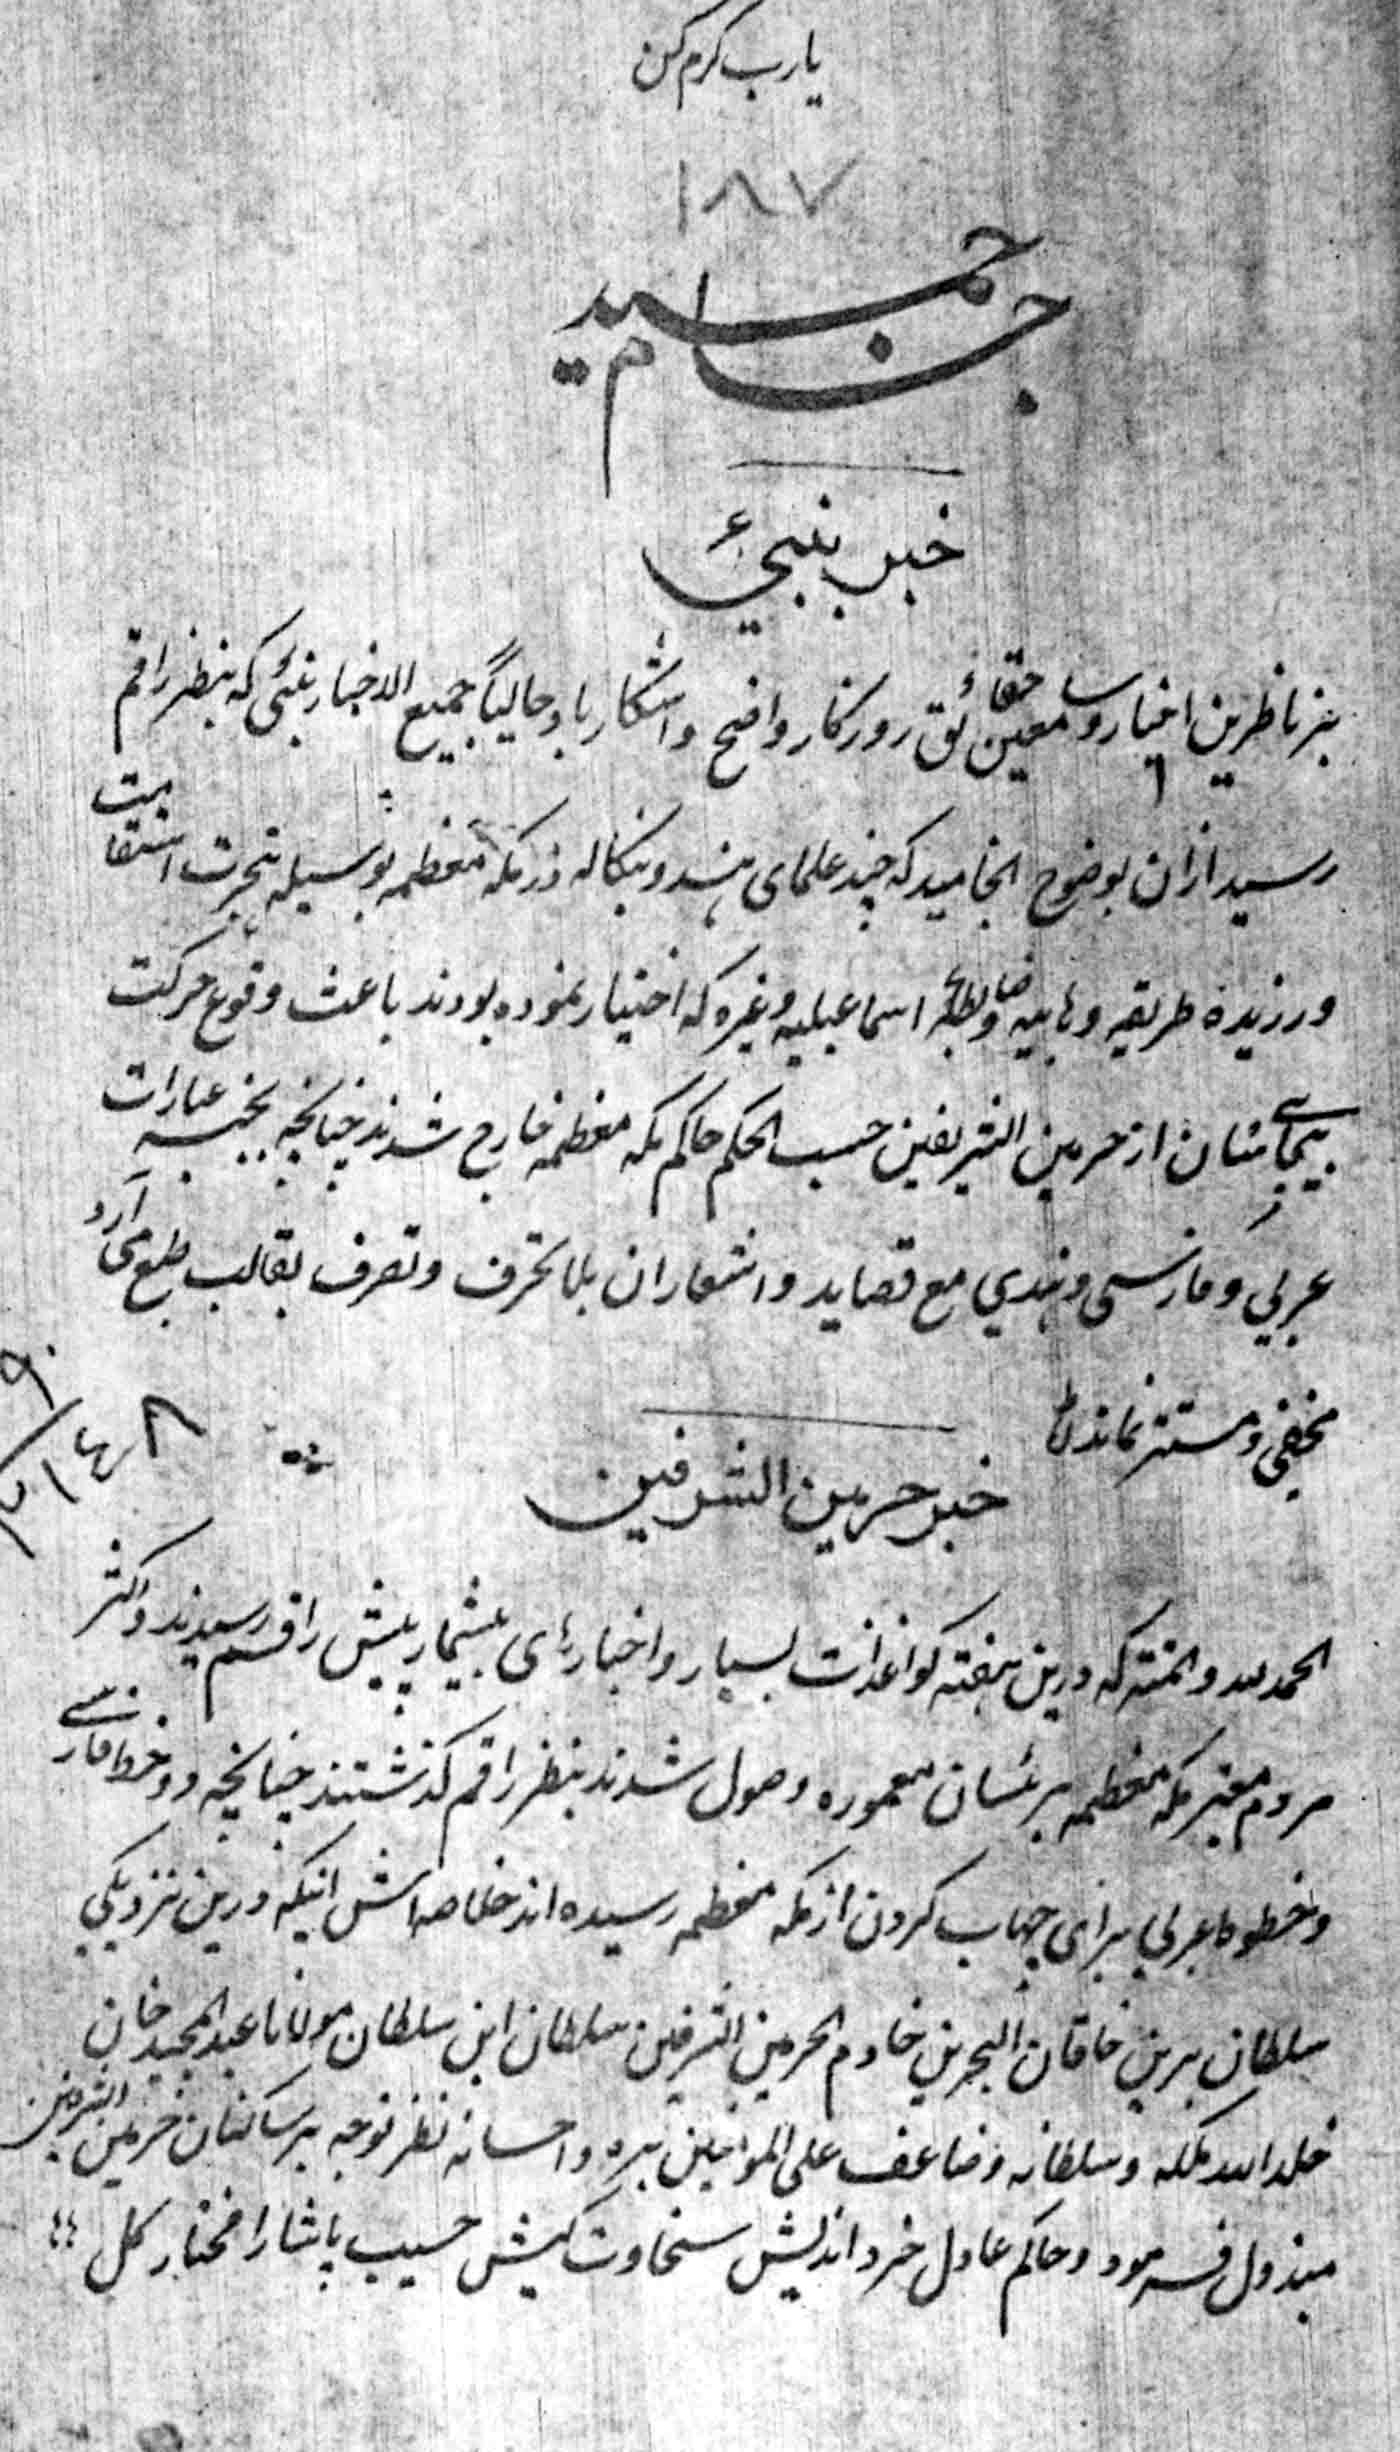 یارب کرم کن
۱۸۷
جام جمشید
خبر بنبئ
بر ناظرین اخبار و سامعین حقائق روزکار واضح و اشکار باد حالیاً جمیع الاخبار بنبئ که بنظر راقم
رسید ازان بوضوح انجامید که چند علمای هند و بنکاله در مکه معظمه بوسیله هجرت استقامت
ورزیده طریقه وهابیه و ضابطه اسماعیلیه وغیره که اختیار نموده بودند باعث وقوع حرکت
بیجای شان از حرمین الشریفین حسب الحکم حاکم مکه معظمه خارج شدند چنانچه بجنسه عبارات
عربی و فارسی و هندی مع قصاید و اشعار ان بلا تحرف و تصرف بقالب طبع می آرد
مخفی و مستتر نماند
خبر حرمین الشرفین
الحمد لله والمنته که درین هفته کواغذات بسیار و اخبارهای بیشمار پیش راقم رسیدند و اکثر
مردم معتبر مکه معظمه برئسان معموره وصول شدند بنظر راقم کذشتند چنانچه دو خط فارسی
و خطوط عربی برای چهاپ کردن از مکه معظمه رسیده اند خلاصه اش اینکه درین نزدیکی
سلطان برین خاقان البحرین خادم الحرمین الشرفین سلطان ابن سلطان مولانا عبدالمجید خان
خلد الله ملکه و سلطانه و ضاعف علی المؤمنین بره و احسانه نظر توجه بر ساکنان حرمین الشرفین
مبذول فرمود و حاکم عادل خرد اندیش سخاوت کیش حسیب پاشا را مختار کل